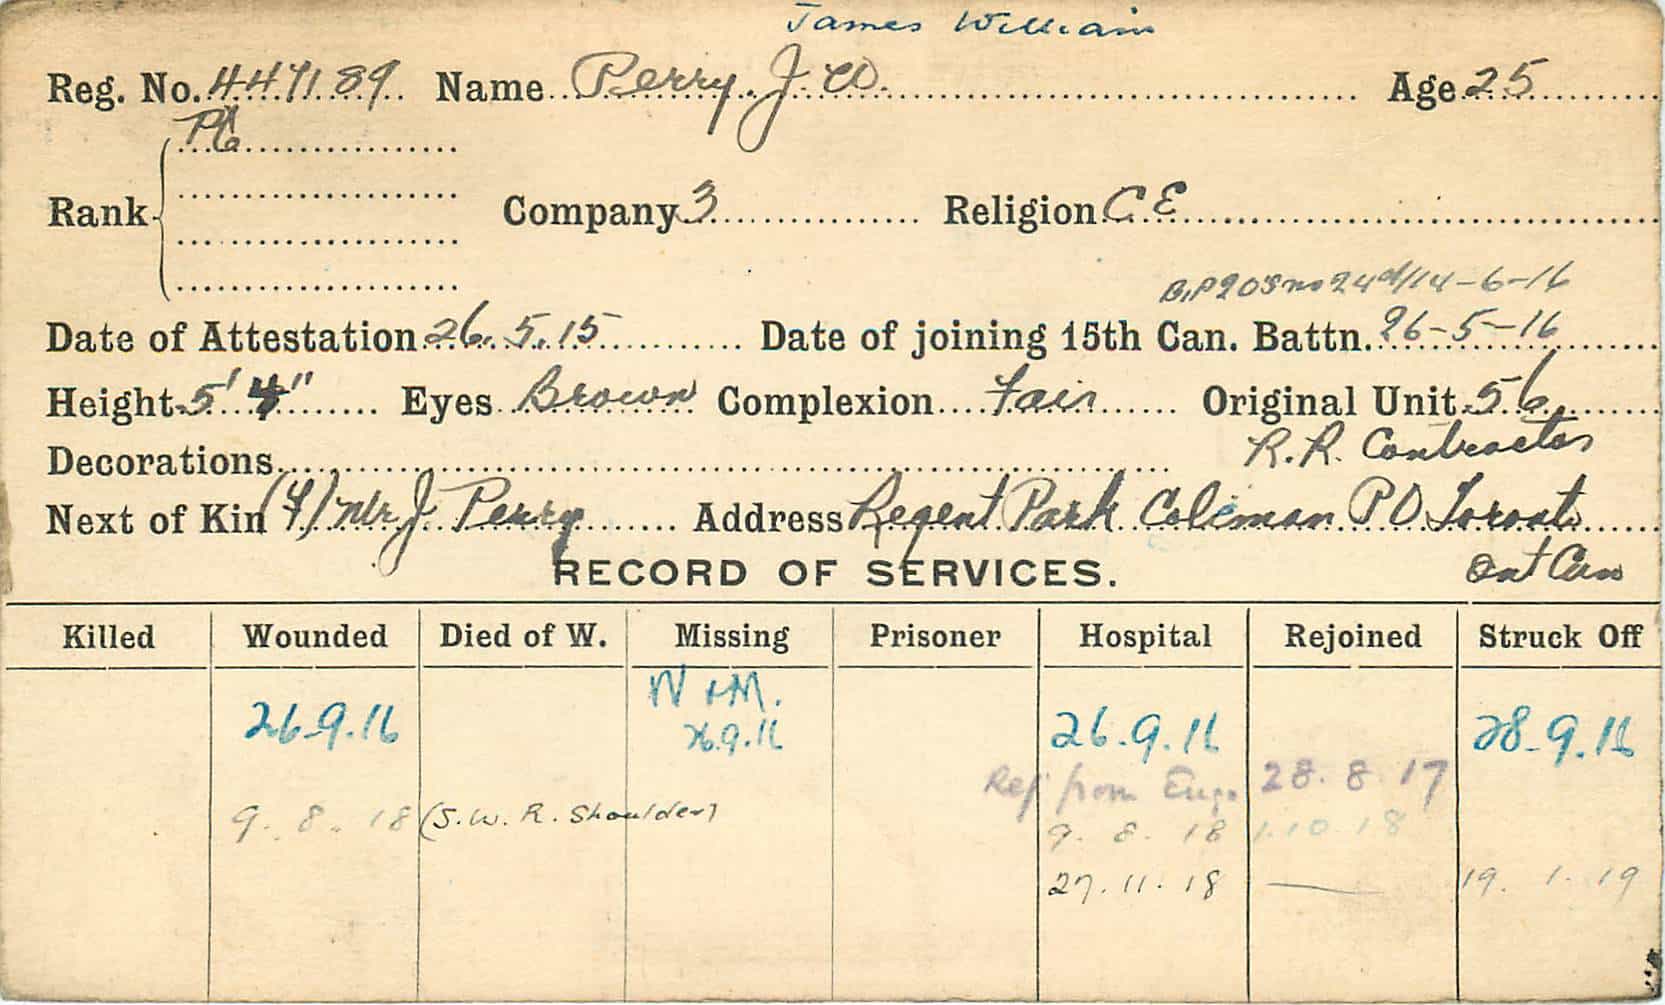 James William
Reg. No. 447189 Name Perry. J. W. Age 25
Pte
Rank Company 3 Religion C.E
14-6-16
Date of Attestation 26.5.15 Date of joining 15th Can. Battn. 26-5-16
Height 5' 4" Eyes Brown Complexion Fair Original Unit 56
R.R. Contractor
Decorations
Next of Kin (F) Mr J. Perry Address Regent Park Coleman PO Toronto
Ont Can
RECORD OF SERVICES.
Killed Wounded Died of W. Missing Prisoner Hospital Rejoined Struck Off
W+M.
26.9.16 26.9.16 26.9.16 28.9.16
Rej from Eng. 28.8.17
9.8.18 (S.W. R. Shoulder) 9.8.18 1.10.18
27.11.18 — 19.1.19